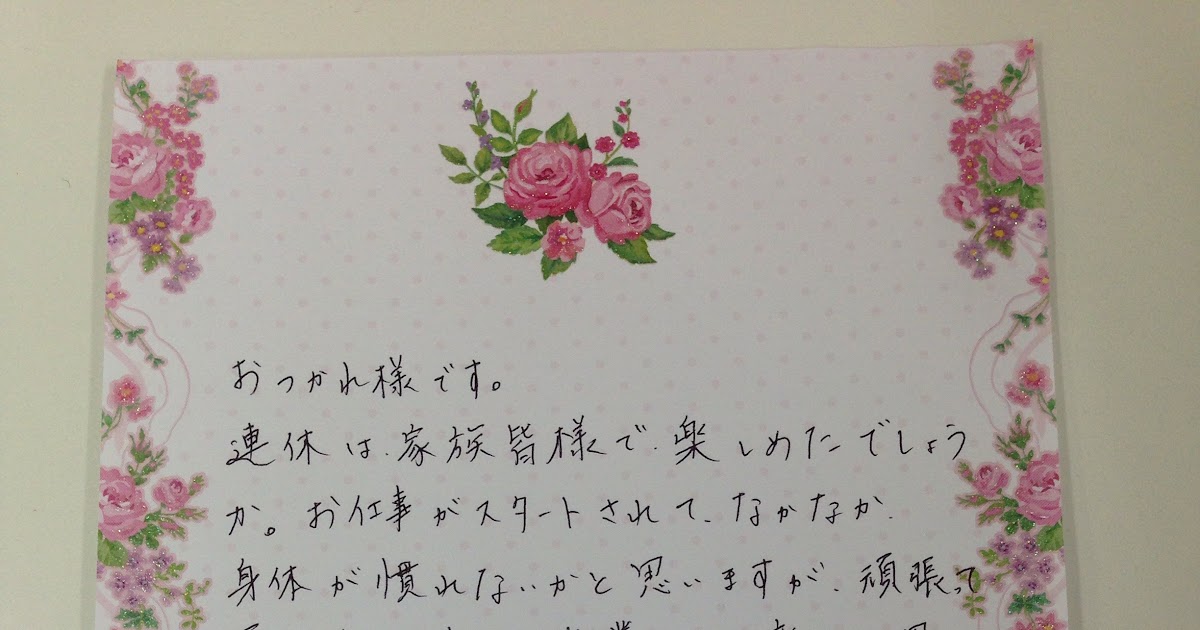 おつかれ様です。
連休は、家族皆様で、楽しめたでしょう
か。お仕事がスタートされて、なかなか、
身体が慣れないかと思いますが、頑張って